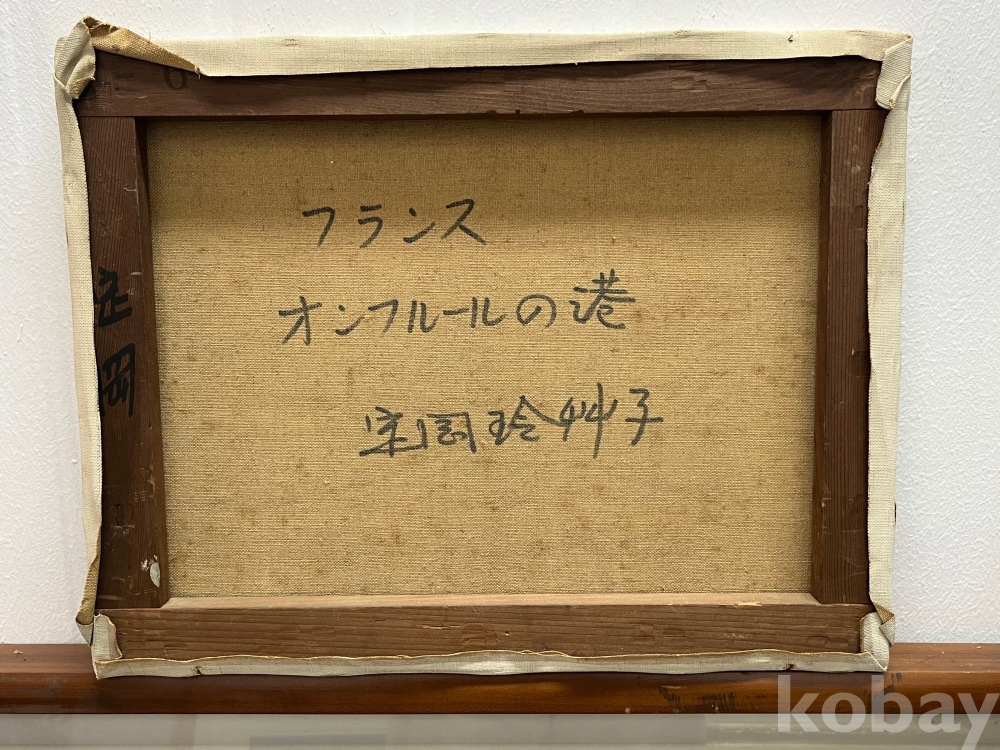 6
フランス
オンフルールの港
定岡玲艸子
定岡
kobay